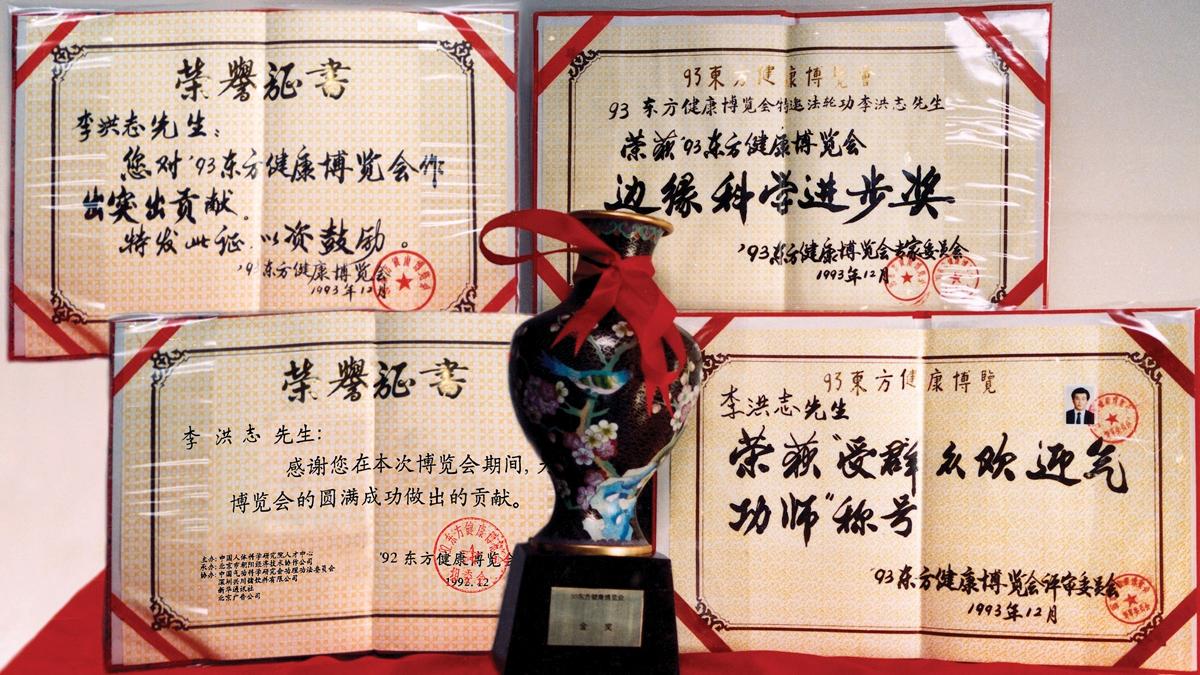 荣誉证书
李洪志先生:
您对'93东方健康博览会作
出突出贡献。
特发此证.以资鼓励。
'93东方健康博览会
1993年12月
93東方健康博覽會
93 东方健康博览会特邀法轮功李洪志先生
荣获'93东方健康博览会
边缘科学进步奖
'93东方健康博览会专家委员会
1993年12月
荣誉证书
李 洪 志 先生:
感谢您在本次博览会期间,
博览会的圆满成功做出的贡献。
主办: 中国人体科学研究院人才中心
承办: 北京市朝阳经济技术协作公司
协办: 中国气功科学研究会功理功法委员会
新华通讯社
北京广告公司
'92 东方健康博览会
1992.12
93東方健康博覽
李洪志先生
荣获“受群众欢迎气
功师”称号
'93东方健康博览会评审委员会
1993年12月
93东方健康博览会
金 奖